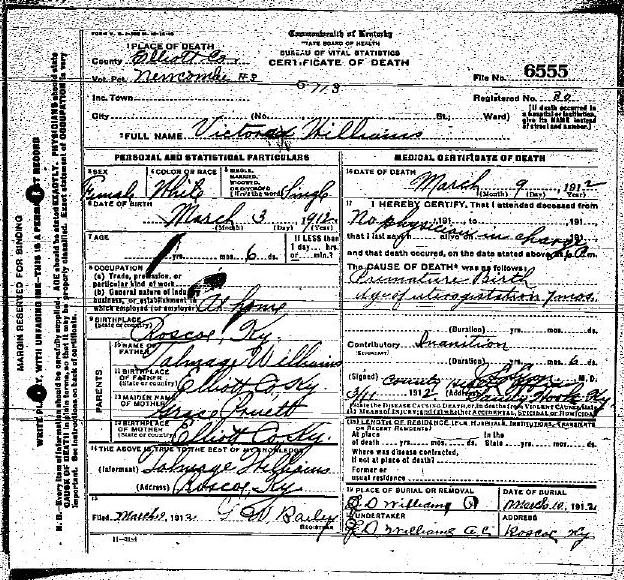 Commonwealth of Kentucky
STATE BOARD OF HEALTH
BUREAU OF VITAL STATISTICS
CERTIFICATE OF DEATH
1 PLACE OF DEATH
County Elliott Co.
Vot. Pct. Newcombe #2
5713
File No. 6555
Inc. Town
Registered No. 20
City (No. St., Ward)
[If death occurred in a hospital or institution, give its NAME instead of street and number.]
2 FULL NAME Williams
PERSONAL AND STATISTICAL PARTICULARS
3 SEX Female
4 COLOR OR RACE White
5 SINGLE, MARRIED, WIDOWED, OR DIVORCED (Write the word) Single
6 DATE OF BIRTH
March 3, 1912
(Month) (Day) (Year)
7 AGE
If LESS than 1 day... hrs. or... min.?
yrs. mos. 6 ds.
8 OCCUPATION
(a) Trade, profession, or particular kind of work
(b) General nature of industry business, or establishment in which employed (or employer) At home
9 BIRTHPLACE
(State or country) Roscoe, Ky.
PARENTS
10 NAME OF FATHER Talmage Williams
11 BIRTHPLACE OF FATHER
(State or country) Elliott Co Ky
12 MAIDEN NAME OF MOTHER Grace Pruett
13 BIRTHPLACE OF MOTHER
(State or country) Elliott Co Ky.
14 THE ABOVE IS TRUE TO THE BEST OF MY KNOWLEDGE
(Informant) Talmage Williams
(Address) Roscoe, Ky
15
Filed March 9, 1912 G W Bailey
REGISTRAR
11-3184
MEDICAL CERTIFICATE OF DEATH
16 DATE OF DEATH
March 9, 1912
(Month) (Day) (Year)
17 I HEREBY CERTIFY, That I attended deceased from
No physician in charge
that I last saw alive on
and that death occurred, on the date stated above, at
The CAUSE OF DEATH* was as follows:
Premature Birth
Age of uterogestation 7 mos.
(Duration) yrs. mos. ds.
Contributory Inanition
(SECONDARY)
(Duration) yrs. mos. 6 ds.
(Signed) County M.D.
1912 (Address) Sandy Hook Ky
18 LENGTH OF RESIDENCE (FOR HOSPITALS, INSTITUTIONS, TRANSIENTS OR RECENT RESIDENTS)
At place of death yrs. mos. ds. In the State yrs. mos. ds.
Where was disease contracted, if not at place of death?
Former or usual residence
19 PLACE OF BURIAL OR REMOVAL
DATE OF BURIAL
J D Williams March 10, 1912
20 UNDERTAKER
ADDRESS
J D Williams Roscoe Ky
MARGIN RESERVED FOR BINDING
WRITE PLAINLY, WITH UNFADING INK—THIS IS A PERMANENT RECORD
N. B.—Every item of information should be carefully supplied. AGE should be stated EXACTLY. PHYSICIANS should state CAUSE OF DEATH in plain terms, so that it may be properly classified. Exact statement of OCCUPATION is very important. See instructions on back of certificate.